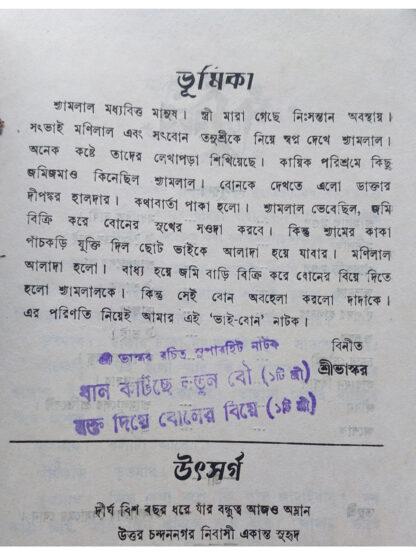 ভূমিকা
শ্যামলাল মধ্যবিত্ত মানুষ। স্ত্রী মারা গেছে নিঃসন্তান অবস্থায়।
সংভাই মণিলাল এবং সংবোন তনুশ্রীকে নিয়ে স্বপ্ন দেখে শ্যামলাল।
অনেক কষ্টে তাদের লেখাপড়া শিখিয়েছে। কায়িক পরিশ্রমে কিছু
জমিজমাও কিনেছিল শ্যামলাল। বোনকে দেখতে এলো ডাক্তার
দীপঙ্কর হালদার। কথাবার্তা পাকা হলো। শ্যামলাল ভেবেছিল, জমি
বিক্রি করে বোনের সুখের সওদা করবে। কিন্তু শ্যামের কাকা
পাঁচকড়ি যুক্তি দিল ছোট ভাইকে আলাদা হয়ে যাবার। মণিলাল
আলাদা হলো। বাধ্য হয়ে জমি বাড়ি বিক্রি করে বোনের বিয়ে দিতে
হলো শ্যামলালকে। কিন্তু সেই বোন অবহেলা করলো দাদাকে।
এর পরিণতি নিয়েই আমার এই ‘ভাই-বোন’ নাটক।
বিনীত
শ্রীভাস্কর
শ্রী ভাস্কর রচিত সুপারহিট নাটক
ধান কাটছে নতুন বৌ (১টি স্ত্রী)
রক্ত দিয়ে বোনের বিয়ে (১টি স্ত্রী)
উৎসর্গ
দীর্ঘ বিশ বছর ধরে যাঁর বন্ধুত্ব আজও অম্লান
উত্তর চন্দননগর নিবাসী একান্ত সুহৃদ